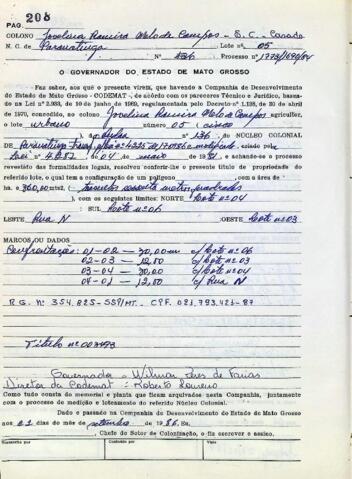 PAG. 208
COLONO Jocelina Ramira Melo de Campos - S. C. - Casada
N. C. de Paranatinga Lote nº 05
Nº 136 Processo nº 1773/1690/84
O GOVERNADOR DO ESTADO DE MATO GROSSO
Faz saber, aos que o presente virem, que havendo a Companhia de Desenvolvimento
do Estado de Mato Grosso - CODEMAT -, de acordo com os pareceres Técnico e Jurídico, basea-
dos na Lei nº 2.933, de 10 de junho de 1969, regulamentada pelo Decreto nº 1.138, de 30 de abril
de 1970, concedido, ao colono, Jocelina Ramira Melo de Campos agricultor,
o lote urbano número 05 (cinco)
da quadra nº 136 do NÚCLEO COLONIAL
de Paranatinga criado pelo
Lei 4.282 de 04 de maio de 1981 e achando-se o processo
revestido das formalidades legais, resolveu conferir-lhe o presente título de propriedade do
referido lote, o qual tem a configuração de um polígono com a área de
ha 360,00 mt2, (trezentos sessenta metros quadrados
), com os seguintes limites: NORTE Lote nº 04
SUL Lote nº 06
LESTE Rua N OESTE Lote nº 03
MARCOS OU DADOS
Confrontação: 01-02 — 30,00 m c/ Lote nº 06
02-03 — 12,00 c/ Lote nº 03
03-04 — 30,00 c/ Lote nº 04
04-01 — 12,00 c/ Rua N
R.G. Nº 354.825-SSP/MT. - CPF. 021.793.421-87
Título nº 007493
Governador - Wilmar Peres de Farias
Diretor da Codemat : Roberto Loureno
Como tudo consta do memorial e planta que ficam arquivados nesta Companhia, juntamente
com o processo de medição e loteamento do referido Núcleo Colonial.
Dado e passado na Companhia de Desenvolvimento do Estado de Mato Grosso
aos 21 dias do mês de setembro de 1986. Eu,
, Chefe do Setor de Colonização, o fiz escrever e assino.